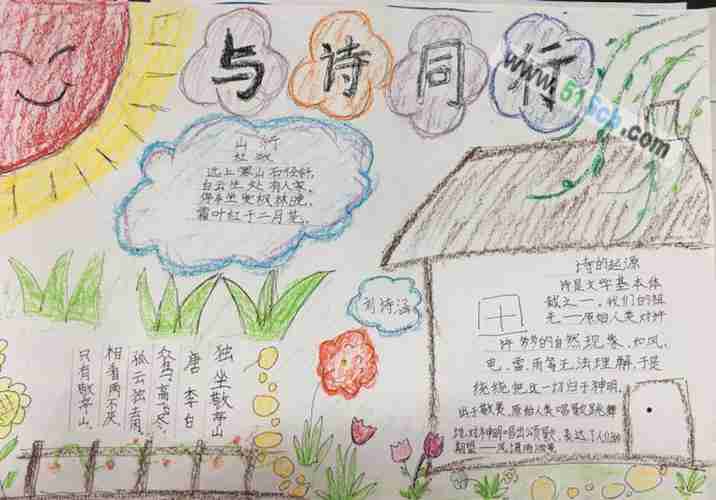 与诗同行
www.515cb.com
山行
杜牧
远上寒山石径斜,
白云生处有人家,
停车坐爱枫林晚,
霜叶红于二月花。
刘诗涵
独坐敬亭山
唐 李白
众鸟高飞尽,
孤云独去闲,
相看两不厌,
只有敬亭山。
诗的起源
诗是文学基本体
裁之一。我们的祖
先——原始人类对许
许多多的自然现象,如风,
电、雷、雨等无法理解,于是
统统把这一切归于神明。
出于敬畏,原始人类唱歌跳舞
对神明唱出颂歌,表达了人们的
期望——风调雨顺